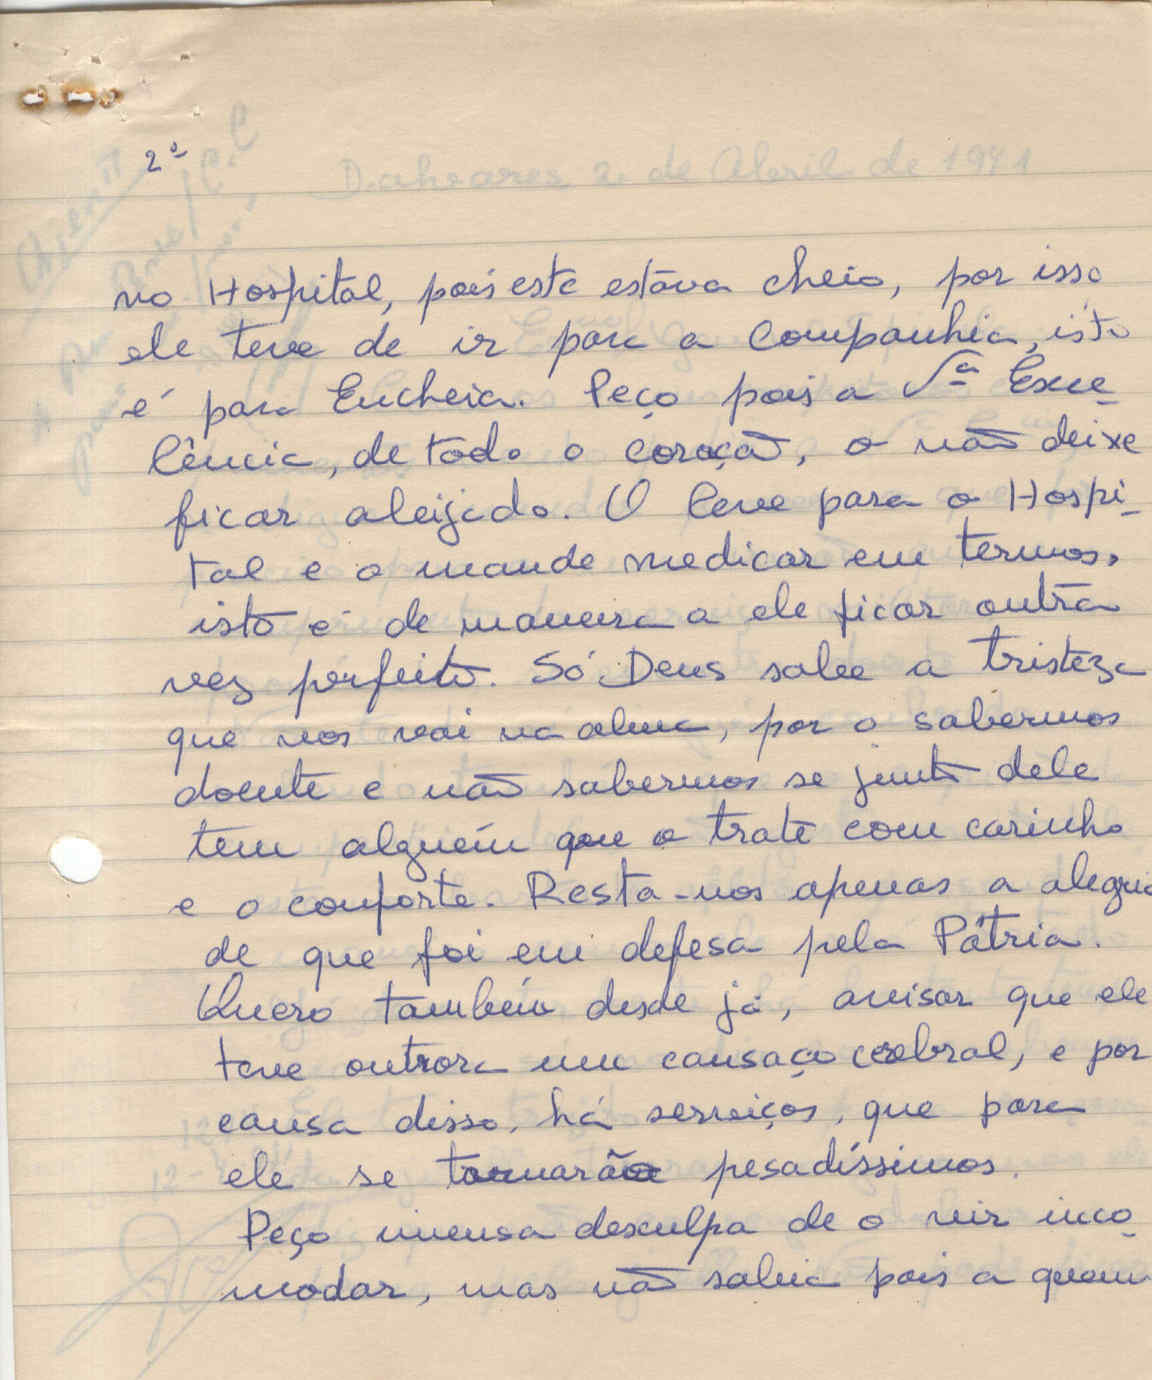 2º
Dalvares 2 de Abril de 1971
no Hospital, pois este estava cheio, por isso
ele teve de ir para a Companhia, isto
é para Encheia. Peço pois a Sª Exce-
lência, de todo o coração, o não deixe
ficar aleijado. O leve para o Hospi-
tal e o mande medicar em termos,
isto é de maneira a ele ficar outra
vez perfeito. Só Deus sabe a tristeza
que nos vai na alma, por o sabermos
doente e não sabermos se junto dele
tem alguém que o trate com carinho
e o conforte. Resta-nos apenas a alegria
de que foi em defesa pela Pátria.
Quero também desde já, avisar que ele
teve outrora um cansaço cerebral, e por
causa disso, há serviços, que para
ele se tornarão pesadíssimos.
Peço imensa desculpa de o vir inco-
modar, mas não sabia pois a quem